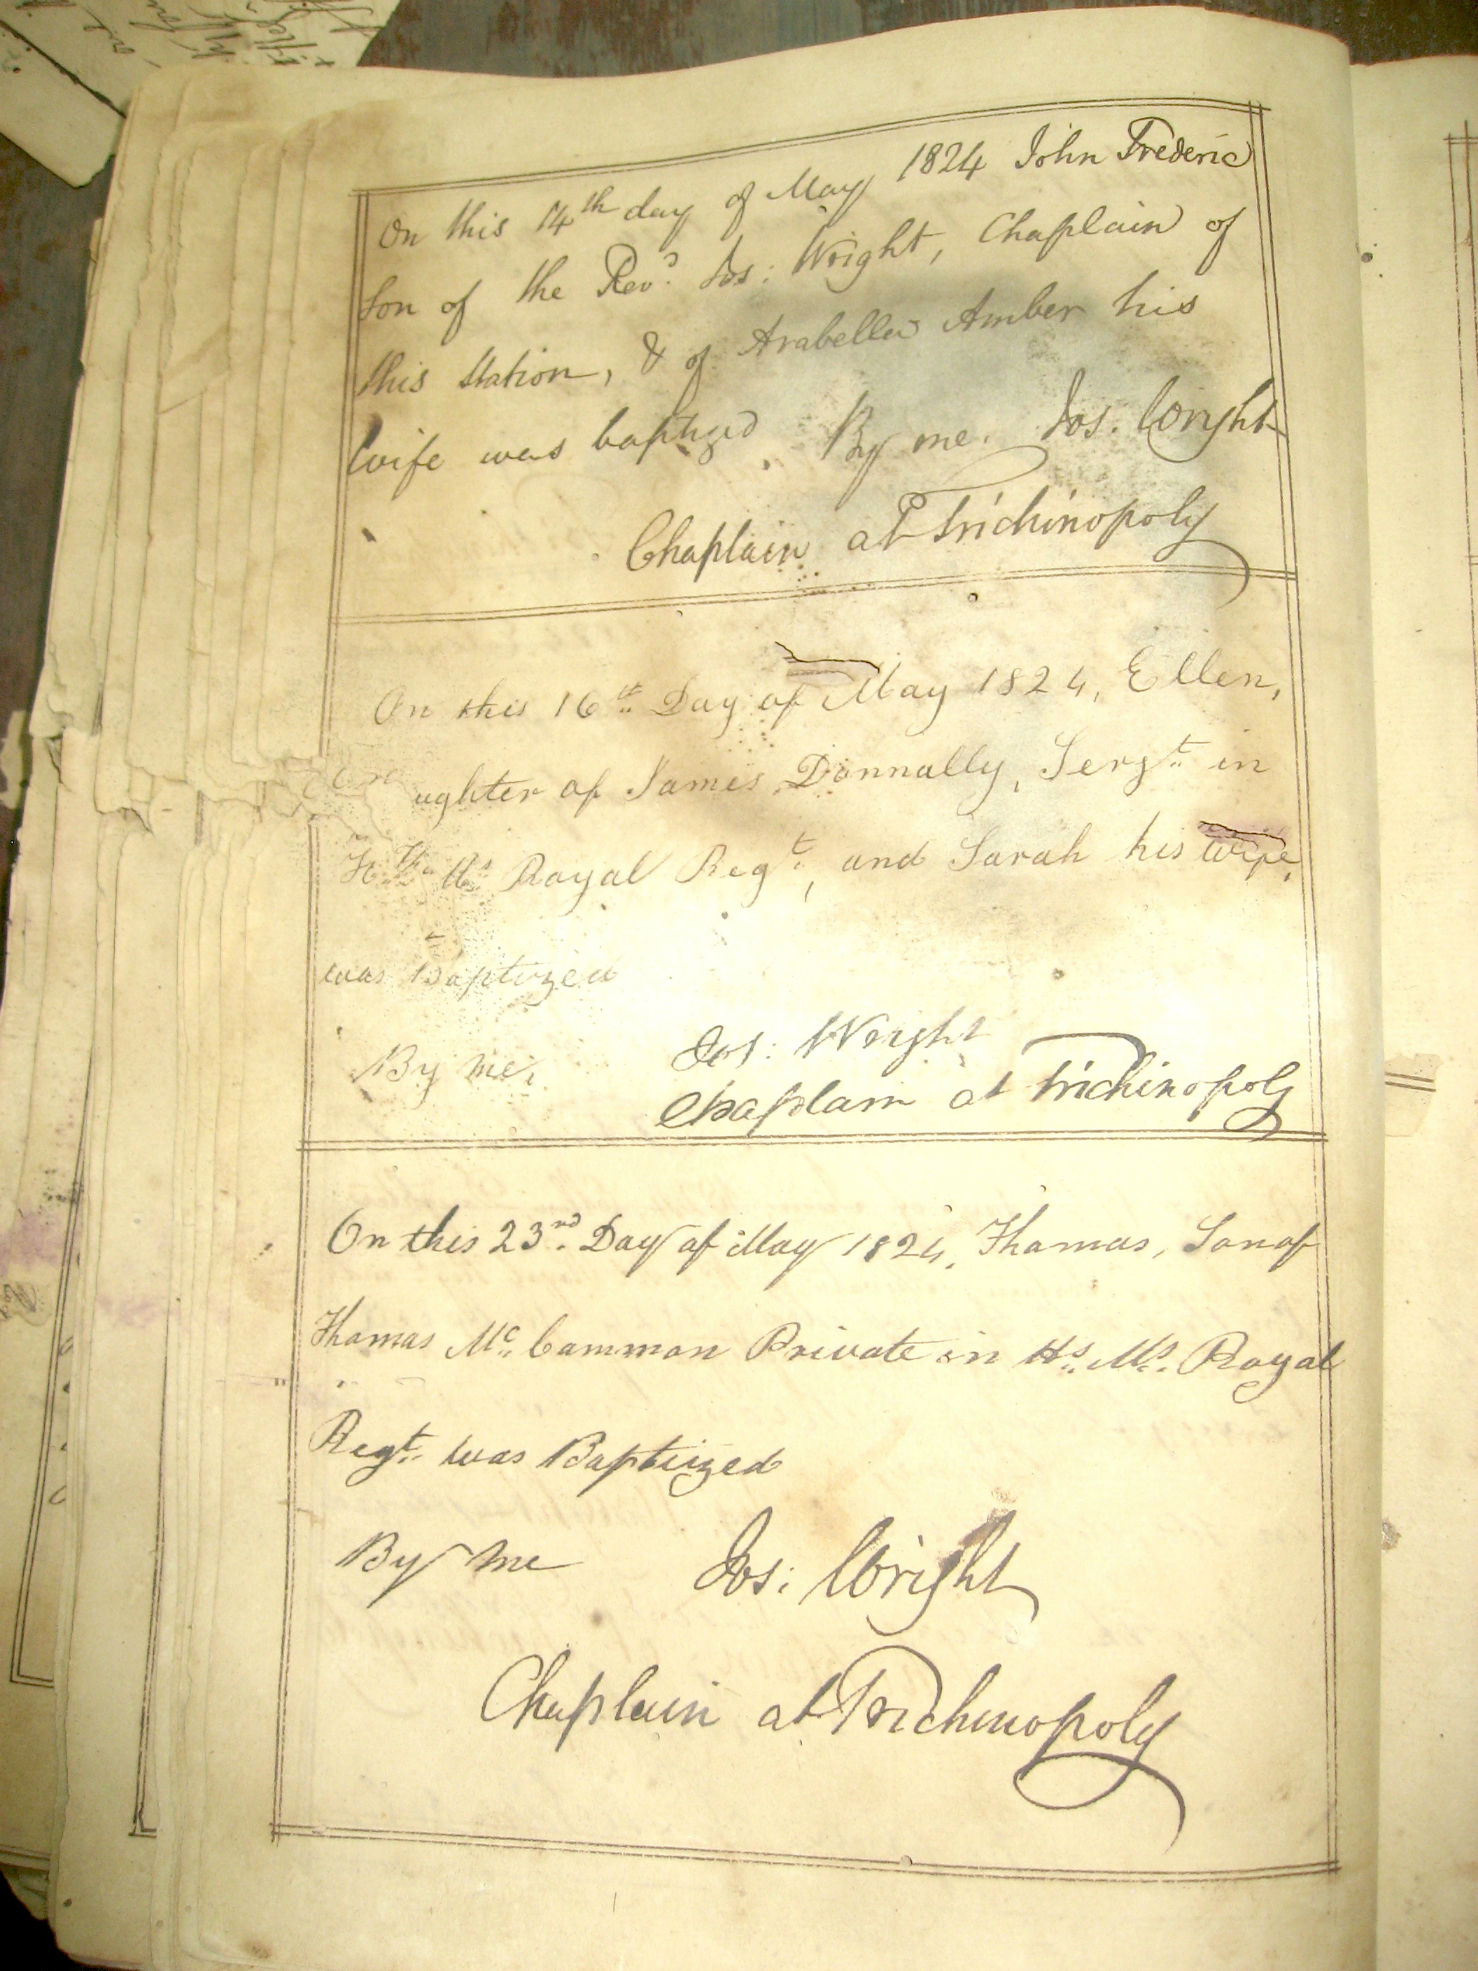 On this 14th day of May 1824 John Frederic
Son of the Revd. Jos: Wright, Chaplain of
this Station, & of Arabella Amber his
Wife was baptized By me. Jos. Wright
Chaplain at Trichinopoly
On this 16th Day of May 1824, Ellen,
ughter of James Donnally, Sergt. in
Ms Royal Regt., and Sarah his Wife,
was Baptized
Jos: Wright
By me,
Chaplain at Trichinopoly
On this 23rd. Day of May 1824, Thomas, Son of
Thomas Mc. Cammon Private in Hs. Ms. Royal
Regt. was Baptized
By me Jos: Wright
Chaplain at Trichinopoly